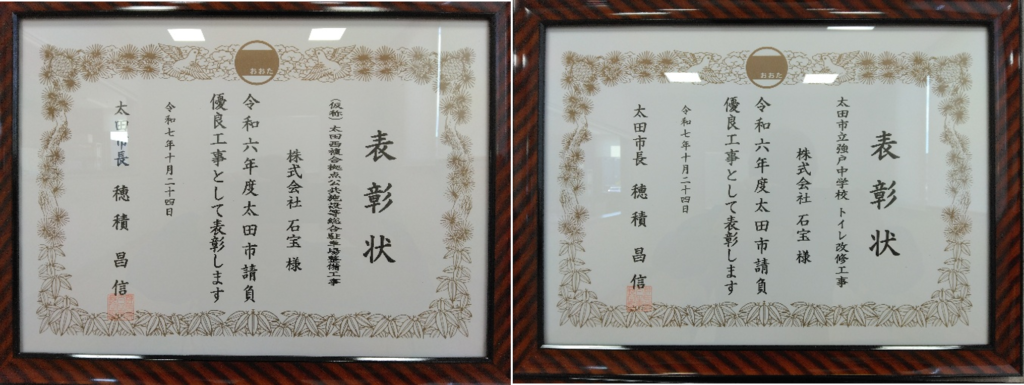 おおた
表彰状
(仮称)太田西複合拠点公共施設等総合駐車場整備工事
株式会社 石宝 様
令和六年度太田市請負
優良工事として表彰します
令和七年十月二十四日
太田市長 穂積 昌信
おおた
表彰状
太田市立強戸中学校 トイレ改修工事
株式会社 石宝 様
令和六年度太田市請負
優良工事として表彰します
令和七年十月二十四日
太田市長 穂積 昌信